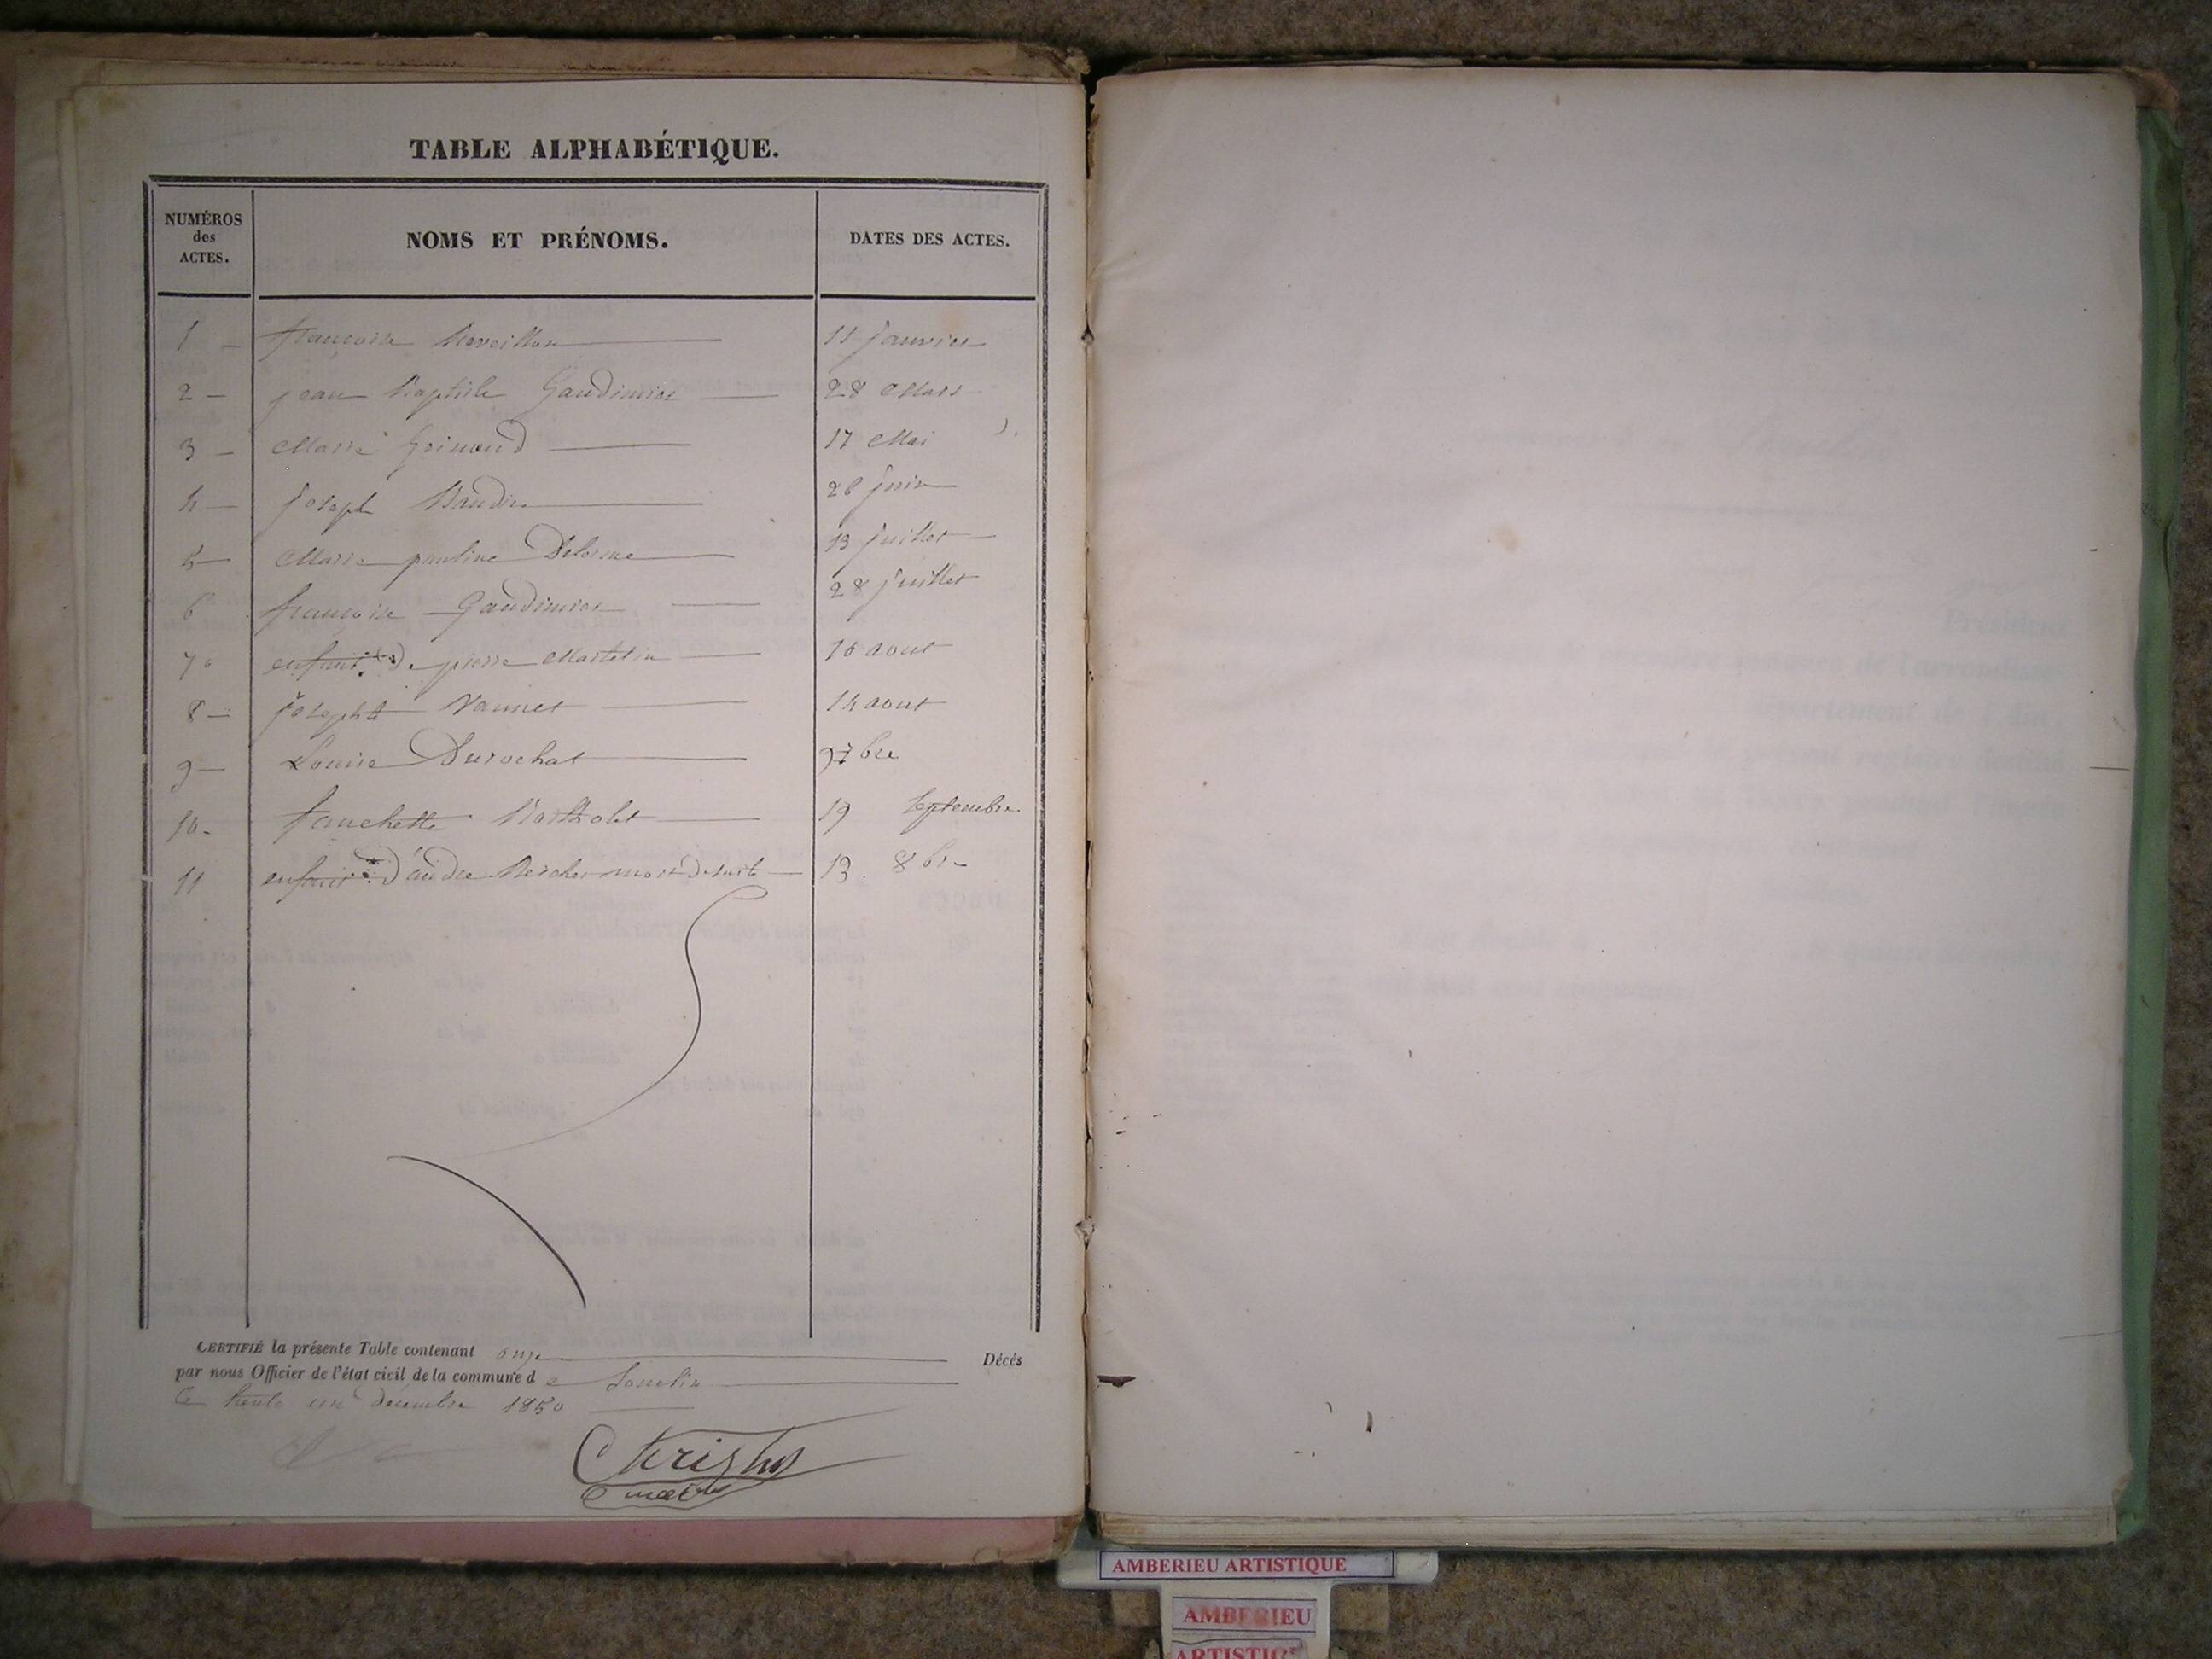 TABLE ALPHABÉTIQUE.
NUMÉROS des ACTES.
NOMS ET PRÉNOMS.
DATES DES ACTES.
1 — françoise 11 janvier
2 — jean Baptiste Gaudinier 28 Mars
3 — Marie Grimaud 17 Mai
4 — joseph Baudin 28 juin
5 — Marie pauline Delorme 13 juillet
6 françoise Gaudinier 28 juillet
7 enfant de pierre Martelin 10 aout
8 — joseph Vannet 14 aout
9 — Louise Durochat 9 7bre
10 - fanchette Bartholet 19 Septembre
11 enfant d'andre mort de suite 13 8bre
CERTIFIÉ la présente Table contenant onze Décés
par nous Officier de l'état civil de la commune de Souclin
Ce trente un décembre 1850
maire
AMBERIEU ARTISTIQUE
AMBERIEU
ARTISTIQUE